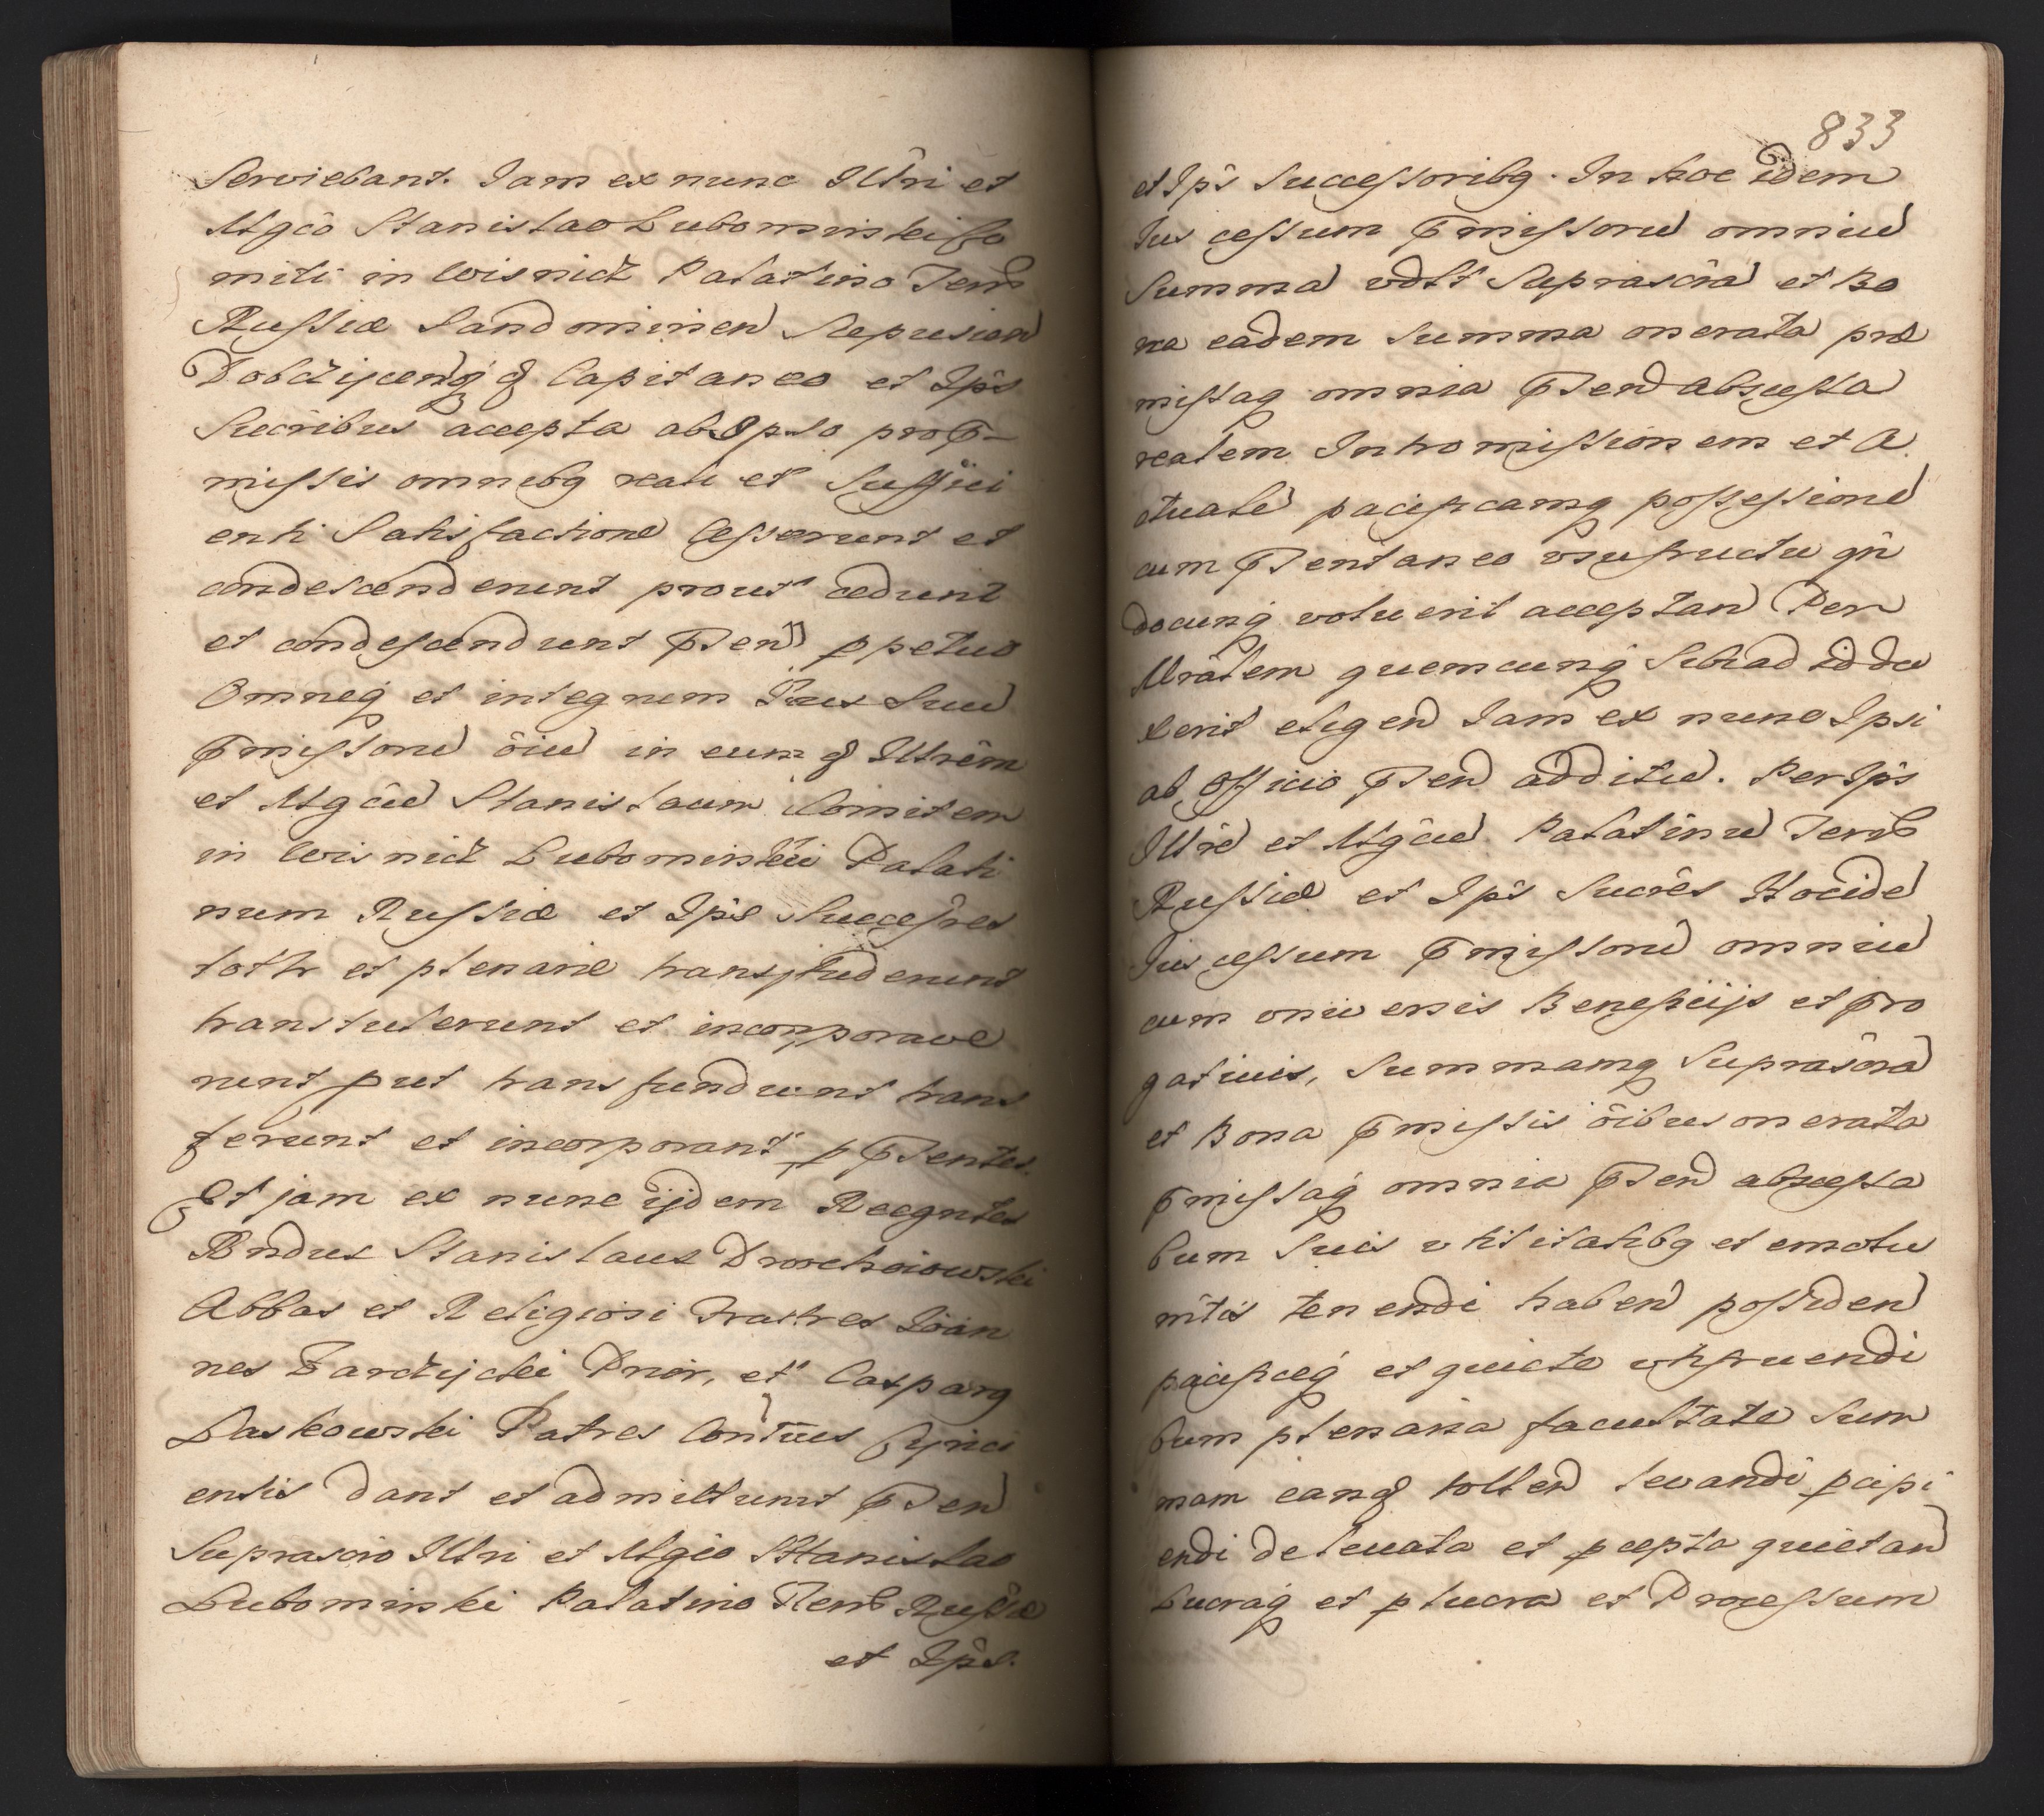 Serviebant. Iam ex nunc Illri et
Mgco Stanislao Lubomirski Co
miti in Wisnicz Palatino Terrũ
Russiæ Sandomirien Scepusien
Dobczycenq & Capitaneo et Ips
Sucribus accepta ab Ipso pro p̃
missis omnibq reali et Suffici
enti Satisfactione Cesserunt et
condescenderunt prout cedunt
et condescendunt p̃sen ppetuo
Omneq et integrum Ius Suũ
p̃missorũ õiũ in eum & Illrẽm
et Mgcũ Stanislaum Comitem
in Wisnicz Lubomirski Palati
num Russiæ et Ips Succesres
totlr et plenarie transfuderunt
transtulerunt et incorporave
runt put transfundunt trans
ferunt et incorporant p p̃sentes.
Et jam ex nunc ijdem Recgntes
Rndus Stanislaus Drohoiowski
Abbas et Religiosi Fratres Ioan
nes Bardzycki Prior, et Casparq
Laskowski Patres Contũes Tyneci
ensis dant et admittunt p̃sen
Suprascro Illri et Mgco Stanislao
Lubomirski Palatino Terrũ Russiæ
et Ips.
833
et Ips Successoribq. In hoc idem
Ius cessum p̃missorũ omniũ
Summã vdlt Suprascrã et Bo
na eadem Summa onerata præ
missaq omnia p̃sen abscessa
realem Intromissionem et A
ctualẽ pacificamq possessionẽ
cum p̃sentaneo vsufructu qñ
docunq voluerit acceptan Per
Mrãlem quemcunq Sibi ad id du
xerit eligen Iam ex nunc Ipsi
ab officio p̃sen additũ. Per Ips
Illrẽ et Mgcũ Palatinũ Terrũ
Russiæ et Ips Sucres Hocide
Ius cessum p̃missorũ omniũ
cum vniuersis Beneficijs et p̃ro
gatiuis, Summamq Suprascrã
et Bona p̃missis õibus onerata
p̃missaq omnia p̃sen abscessa
Cum Suis vtilitatibq et emolu
mtis tenendi haben possiden
pacificeq et quiete vtifruendi
Cum plenaria facultate Sum
mam eanq tollen levandi pcipi
endi de leuata et pcepta quietan
Lucraq et p lucra et Processum